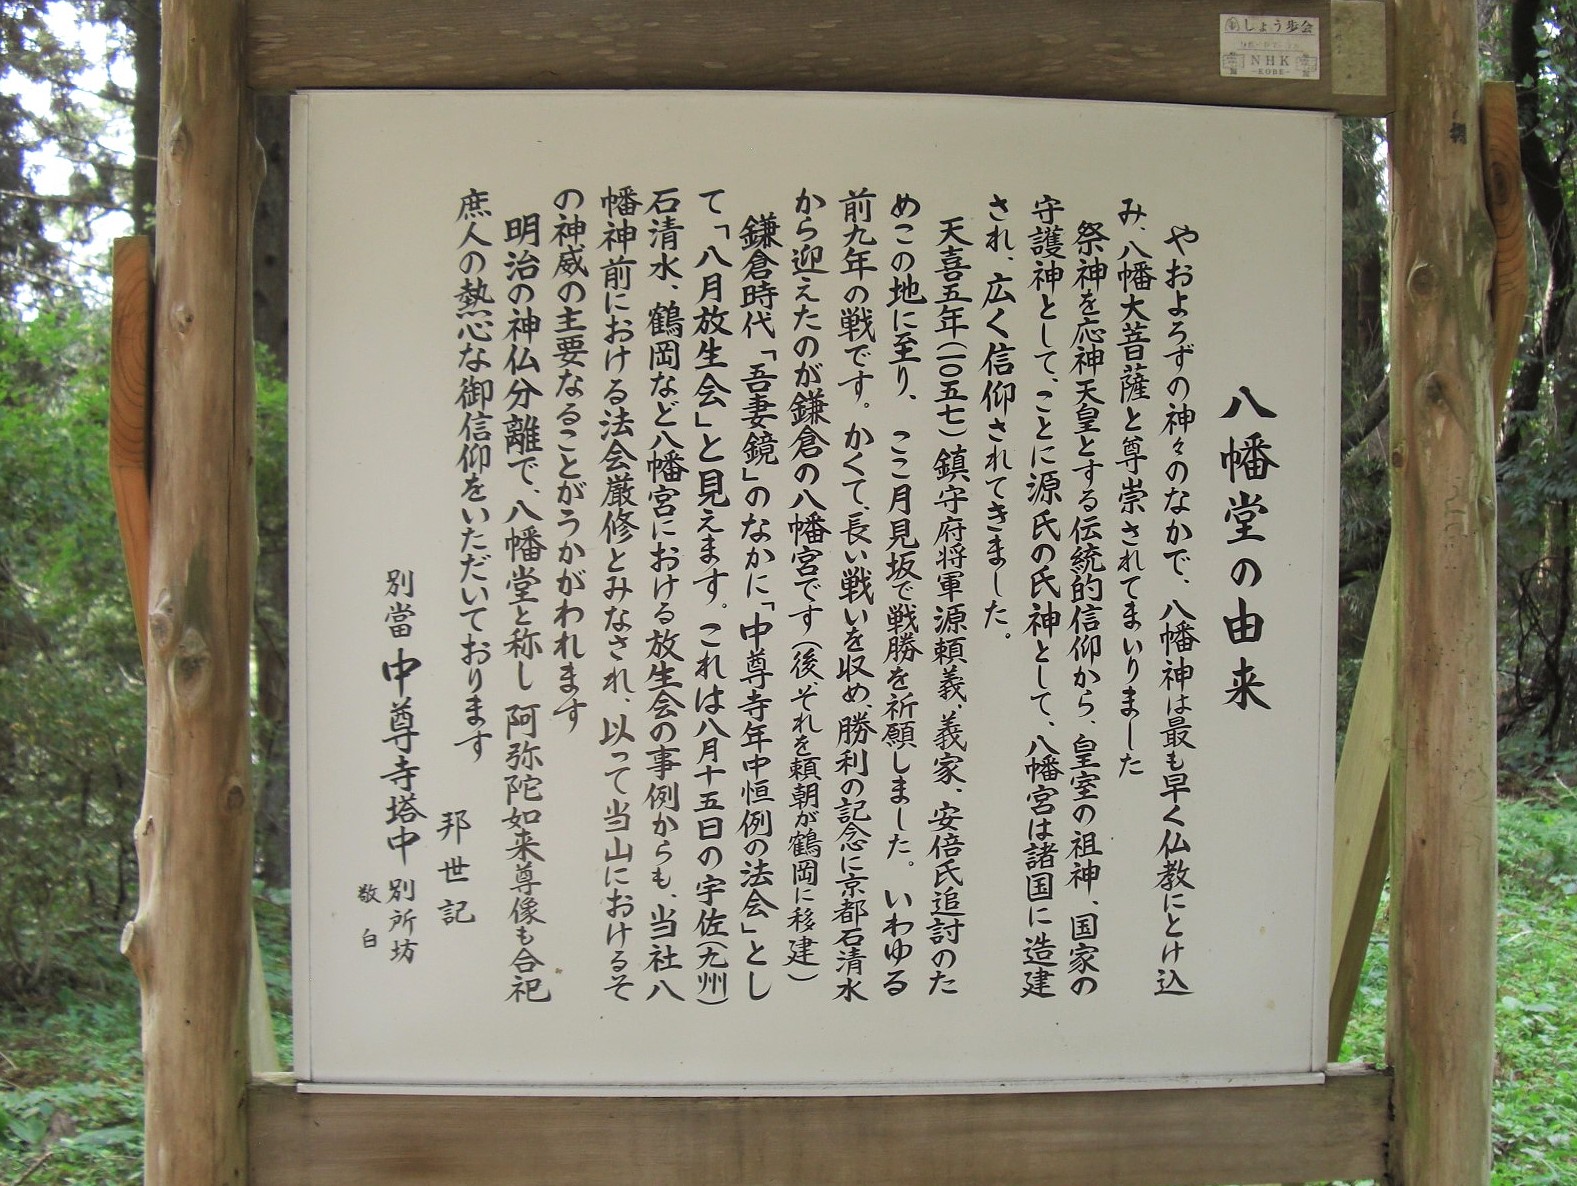 八幡堂の由来
やおよろずの神々のなかで、八幡神は最も早く仏教にとけ込
み、八幡大菩薩と尊崇されてまいりました
祭神を応神天皇とする伝統的信仰から、皇室の祖神、国家の
守護神として、ことに源氏の氏神として、八幡宮は諸国に造建
され、広く信仰されてきました。
天喜五年(一〇五七)鎮守府将軍源頼義、義家、安倍氏追討のた
めこの地に至り、ここ月見坂で戦勝を祈願しました。いわゆる
前九年の戦です。かくて、長い戦いを収め、勝利の記念に京都石清水
から迎えたのが鎌倉の八幡宮です(後、それを頼朝が鶴岡に移建)
鎌倉時代「吾妻鏡」のなかに「中尊寺年中恒例の法会」とし
て「八月放生会」と見えます。これは八月十五日の宇佐(九州)
石清水、鶴岡など八幡宮における放生会の事例からも、当社八
幡神前における法会厳修とみなされ、以って当山におけるそ
の神威の主要なることがうかがわれます
明治の神仏分離で、八幡堂と称し阿弥陀如来尊像も合祀
庶人の熱心な御信仰をいただいております
邦世記
別當中尊寺塔中別所坊
敬白
しょう歩会
NHK
-KOBE-